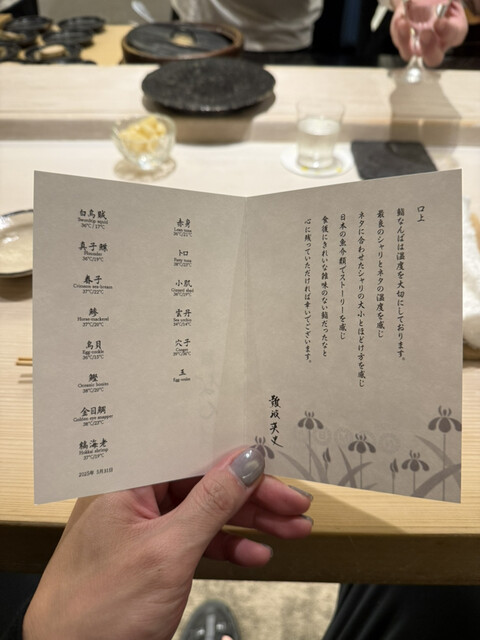 白烏賊
Swordtip squid
36°C / 17°C
真子鰈
Flounder
36°C/19°C
春子
Crimson sea-bream
37°C/22°C
鯵
Horse-mackerel
37°C/20°C
鳥貝
Egg cockle
36°C/15°C
鰹
Oceanic bonito
38°C/20°C
金目鯛
Golden eye snapper
38°C/23°C
縞海老
Hokkai shrimp
37°C/19°C
2025年 5月31日
赤身
Lean tuna
38°C/21°C
トロ
Fatty tuna
小肌
Gizzard shad
36°C/19°C
雲丹
Sea urchin
穴子
Conger
玉
Egg
口上
鮨なんばは温度を大切にしております。
最良のシャリとネタの温度を感じ
ネタに合わせたシャリの大小とほどけ方を感じ
日本の魚介類でストーリーを感じ
食後にきれいな雑味のない鮨だったなと
心に残っていただければ幸いでございます。
難波英史